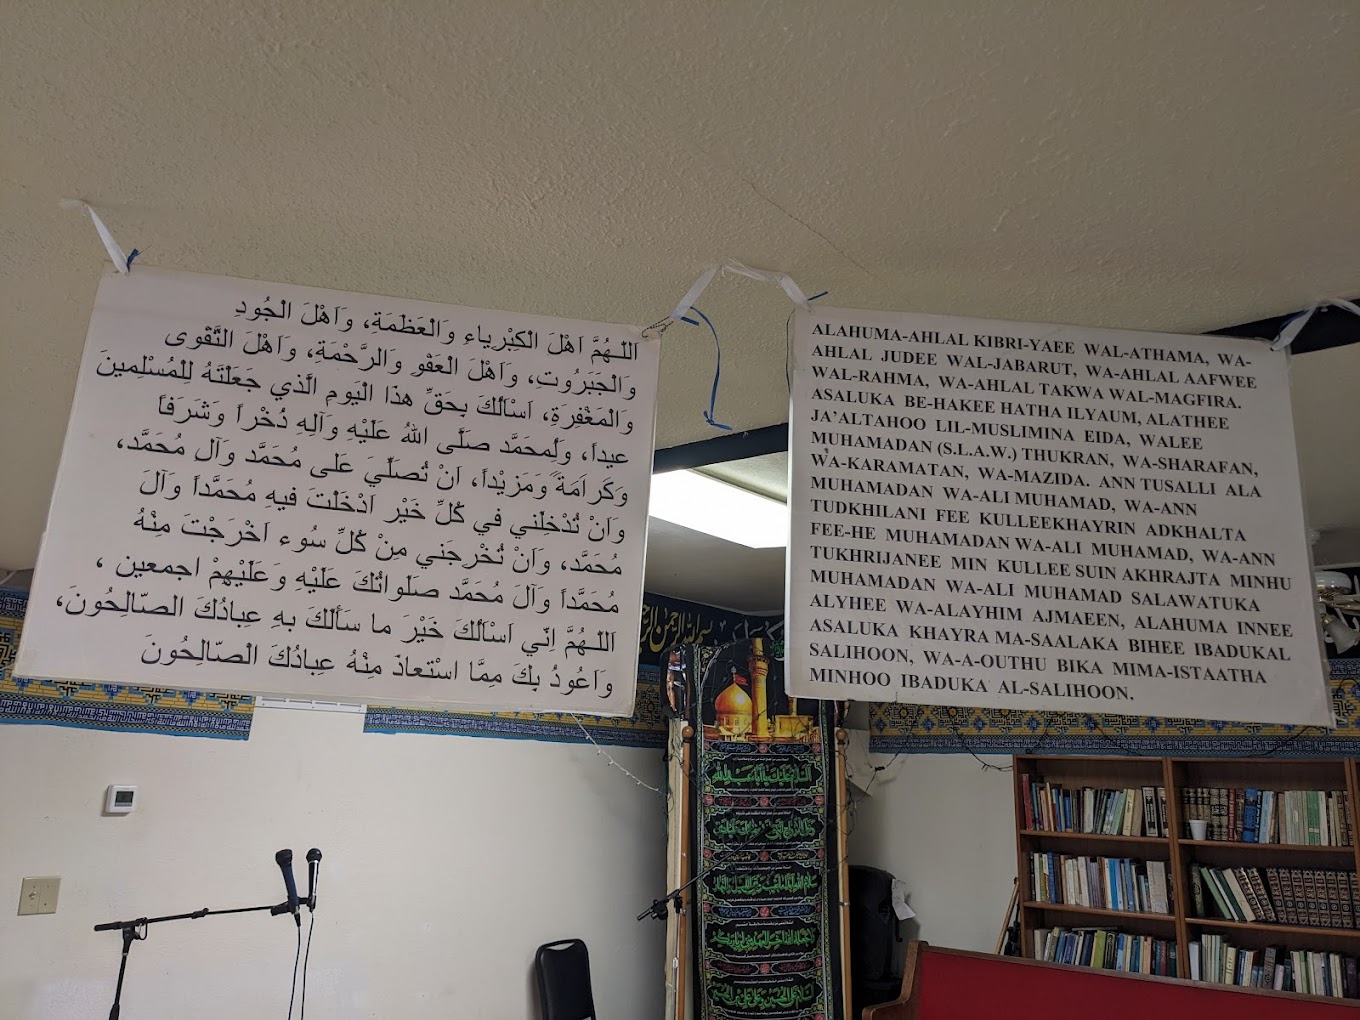 اللّـهُمَّ اَهْلَ الْكِبْرِياءِ وَالْعَظَمَةِ، وَاَهْلَ الْجُودِ
وَالْجَبَرُوتِ، وَاَهْلَ الْعَفْوِ وَالرَّحْمَةِ، وَاَهْلَ التَّقْوى
وَالْمَغْفِرَةِ، اَسْاَلُكَ بِحَقِّ هذَا الْيَومِ الَّذي جَعَلْتَهُ لِلْمُسْلِمينَ
عيداً، وَلِمحَمَّد صَلَّى اللهُ عَلَيْهِ وَآلِهِ ذُخْراً وَشَرَفاً
وَكَرامَةً وَمَزيْداً، اَنْ تُصَلِّيَ عَلى مُحَمَّد وَآلِ مُحَمَّد،
وَاَنْ تُدْخِلَني في كُلِّ خَيْر اَدْخَلْتَ فيهِ مُحَمَّداً وَآلَ
مُحَمَّد، وَاَنْ تُخْرِجَني مِنْ كُلِّ سُوء اَخْرَجْتَ مِنْهُ
مُحَمَّداً وَآلَ مُحَمَّد صَلَواتُكَ عَلَيْهِ وَعَلَيْهِمْ اجمعين ،
اَللّـهُمَّ اِنّي اَسْاَلُكَ خَيْرَ ما سَأَلَكَ بِهِ عِبادُكَ الصّالِحُونَ،
وَاَعُوذُ بِكَ مِمَّا اسْتعاذَ مِنْهُ عِبادُكَ الصّالِحُونَ
ALAHUMA-AHLAL KIBRI-YAEE WAL-ATHAMA, WA-
AHLAL JUDEE WAL-JABARUT, WA-AHLAL AAFWEE
WAL-RAHMA, WA-AHLAL TAKWA WAL-MAGFIRA.
ASALUKA BE-HAKEE HATHA ILYAUM, ALATHEE
JA'ALTAHOO LIL-MUSLIMINA EIDA, WALEE
MUHAMADAN (S.L.A.W.) THUKRAN, WA-SHARAFAN,
WA-KARAMATAN, WA-MAZIDA. ANN TUSALLI ALA
MUHAMADAN WA-ALI MUHAMAD, WA-ANN
TUDKHILANI FEE KULLEEKHAYRIN ADKHALTA
FEE-HE MUHAMADAN WA-ALI MUHAMAD, WA-ANN
TUKHRIJANEE MIN KULLEE SUIN AKHRAJTA MINHU
MUHAMADAN WA-ALI MUHAMAD SALAWATUKA
ALYHEE WA-ALAYHIM AJMAEEN, ALAHUMA INNEE
ASALUKA KHAYRA MA-SAALAKA BIHEE IBADUKAL
SALIHOON, WA-A-OUTHU BIKA MIMA-ISTAATHA
MINHOO IBADUKA AL-SALIHOON.
بسم الله الرحمن الرحيم
السلام عليك يا ابا عبد الله